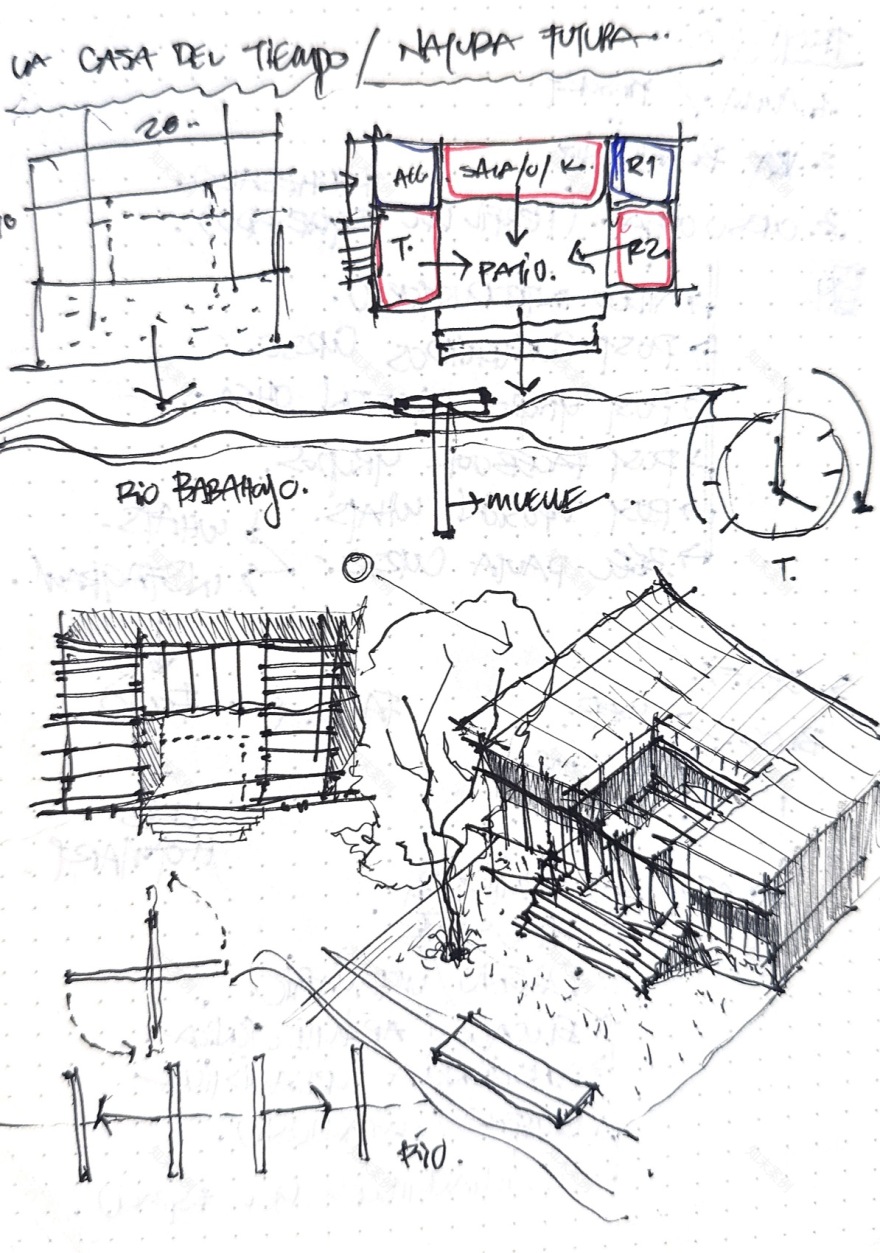 LA CASA DEL TIEMPO / NAYUDA FUTURA...
20.-
ACC
SALA/C/K.
R1
T.
PATIO.
R2
RIO BABAHOYO.
MUELLE.
T.
RÍO.